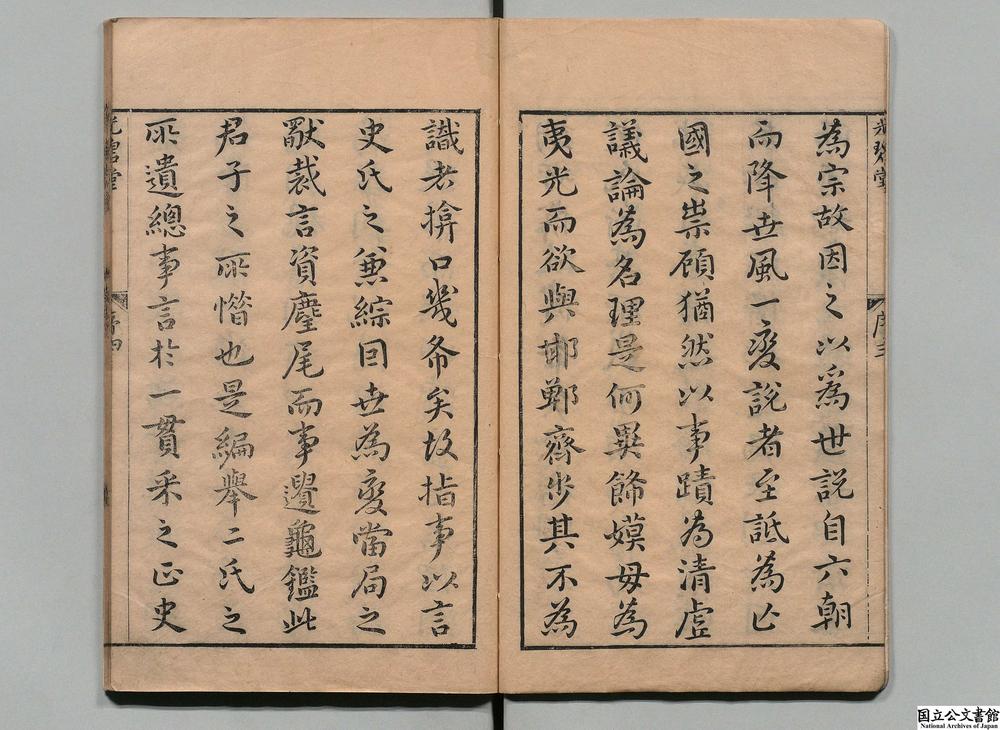 為宗故因之以為世說自六朝
而降世風一變說者至詆為亡
國之祟顧猶然以事蹟為清虛
議論為名理是何異飾嫫母為
夷光而欲與邯鄲齊步其不為
序三
識者揜口幾希矣故指事以言
史氏之兼綜因世為變當局之
猷裁言資麈尾而事遺龜鑑此
君子之所惜也是編舉二氏之
所遺總事言於一貫采之正史
序四
国立公文書館
National Archives of Japan